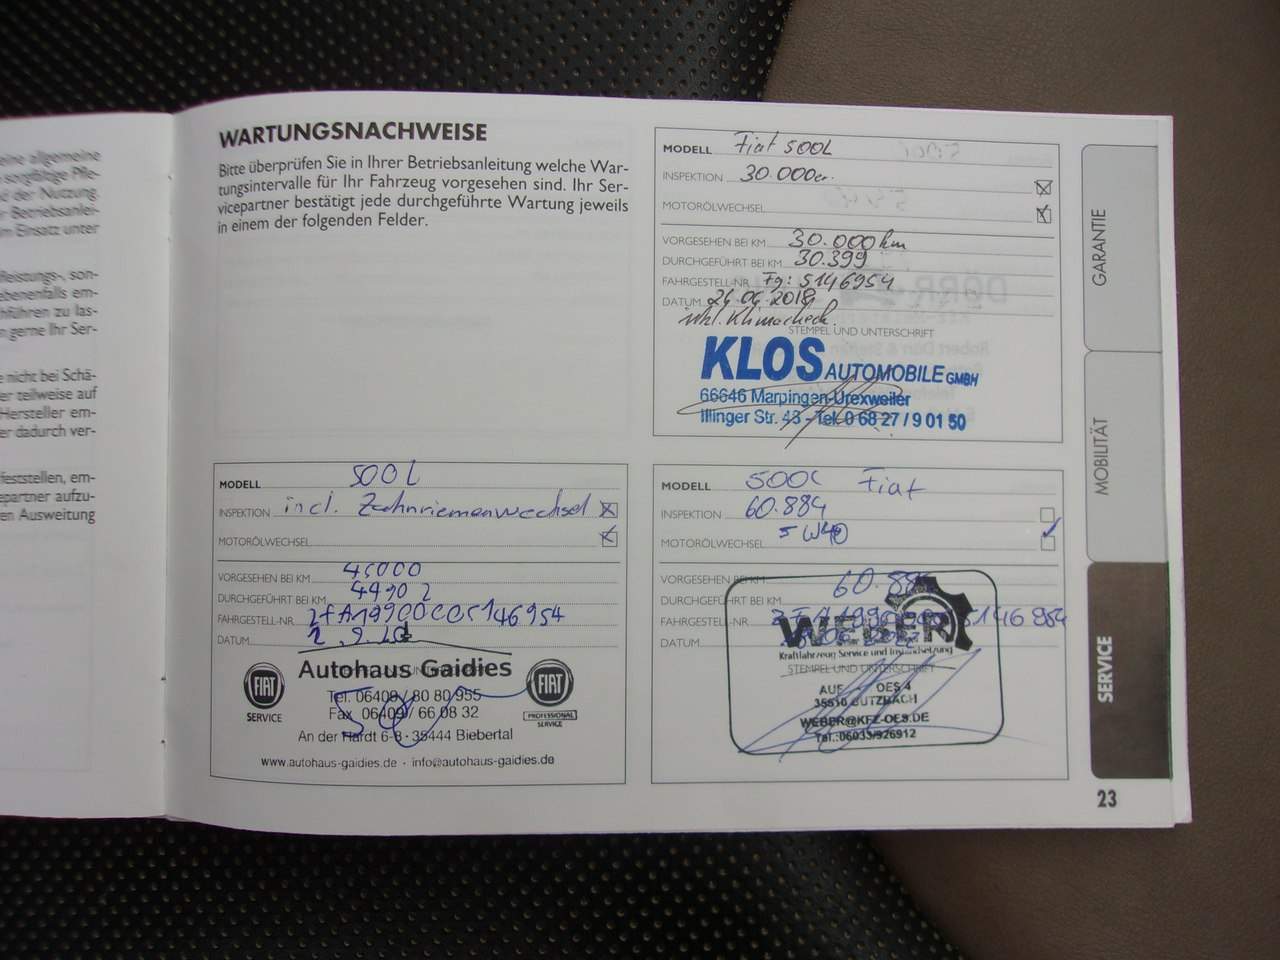 eine allgemeine
sorgfältige Pfle-
d der Nutzung
r Betriebsanlei-
m Einsatz unter
fleistungs-, son-
ebenenfalls em-
hführen zu las-
n gerne Ihr Ser-
e nicht bei Schä-
er teilweise auf
Hersteller em-
er dadurch ver-
feststellen, em-
epartner aufzu-
en Ausweitung
WARTUNGSNACHWEISE
Bitte überprüfen Sie in Ihrer Betriebsanleitung welche War-
tungsintervalle für Ihr Fahrzeug vorgesehen sind. Ihr Ser-
vicepartner bestätigt jede durchgeführte Wartung jeweils
in einem der folgenden Felder.
MODELL Fiat 500L
INSPEKTION 30.000er.
MOTORÖLWECHSEL
VORGESEHEN BEI KM 30.000km
DURCHGEFÜHRT BEI KM 30.399
FAHRGESTELL-NR. Fg: 5146954
DATUM 26.06.2018
inkl. Klimacheck.
STEMPEL UND UNTERSCHRIFT
KLOS AUTOMOBILE GMBH
66646 Marpingen-Urexweiler
Illinger Str. 43 - Tel. 0 68 27 / 9 01 50
MODELL 500L
INSPEKTION incl. Zahnriemenwechsel
MOTORÖLWECHSEL
VORGESEHEN BEI KM 45000
DURCHGEFÜHRT BEI KM 44902
FAHRGESTELL-NR. ZFA19900005146954
DATUM
Autohaus Gaidies
FIAT
SERVICE
Tel. 06409 / 80 80 955
Fax 06409 / 66 08 32
FIAT
PROFESSIONAL
SERVICE
An der Hardt 6-8 · 35444 Biebertal
www.autohaus-gaidies.de · info@autohaus-gaidies.de
MODELL 500L Fiat
INSPEKTION 60.884
MOTORÖLWECHSEL 5W40
VORGESEHEN BEI KM
DURCHGEFÜHRT BEI KM 60.884
FAHRGESTELL-NR.
DATUM
WEBER
Kraftfahrzeug Service und Instandsetzung
STEMPEL UND UNTERSCHRIFT
AUF OES 4
35510 BUTZBACH
WEBER@KFZ-OES.DE
Tel.:06033/926912
GARANTIE
MOBILITÄT
SERVICE
23